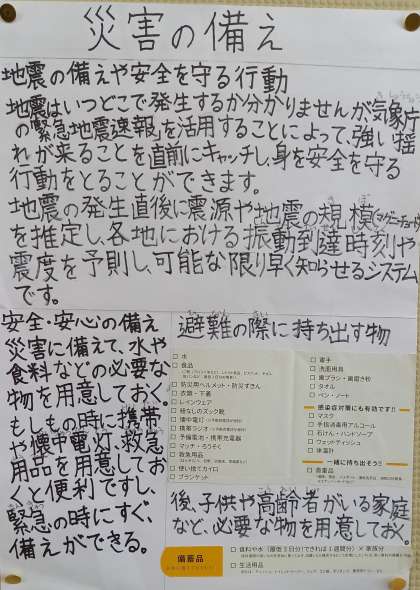 災害の備え
地震の備えや安全を守る行動
地震はいつどこで発生するか分かりませんが気象庁
の「緊急地震速報」を活用することによって、強い揺
れが来ることを直前にキャッチし、身を安全を守る
行動をとることができます。
地震の発生直後に震源や地震の規模(マグニチュード)
を推定し、各地における振動到達時刻や
震度を予測し、可能な限り早く知らせるシステム
です。
安全・安心の備え
災害に備えて、水や
食料などの必要な
物を用意しておく。
もしもの時に携帯
や懐中電灯、救急
用品を用意してお
くと便利ですし、
緊急の時にすぐ、
備えができる。
避難の際に持ち出す物
水
食品
防災用ヘルメット・防災ずきん
衣類・下着
レインウェア
紐なしのズック靴
懐中電灯
携帯ラジオ
予備電池・携帯充電器
マッチ・ろうそく
救急用品
使い捨てカイロ
ブランケット
軍手
洗面用具
歯ブラシ・歯磨き粉
タオル
ペン・ノート
感染症対策にも有効です!!
マスク
手指消毒用アルコール
石けん・ハンドソープ
ウェットティッシュ
体温計
一緒に持ち出そう!!
貴重品
後、子供や高齢者がいる家庭
など、必要な物を用意しておく。
備蓄品
食料や水(最低3日分!できれば1週間分)×家族分
生活用品